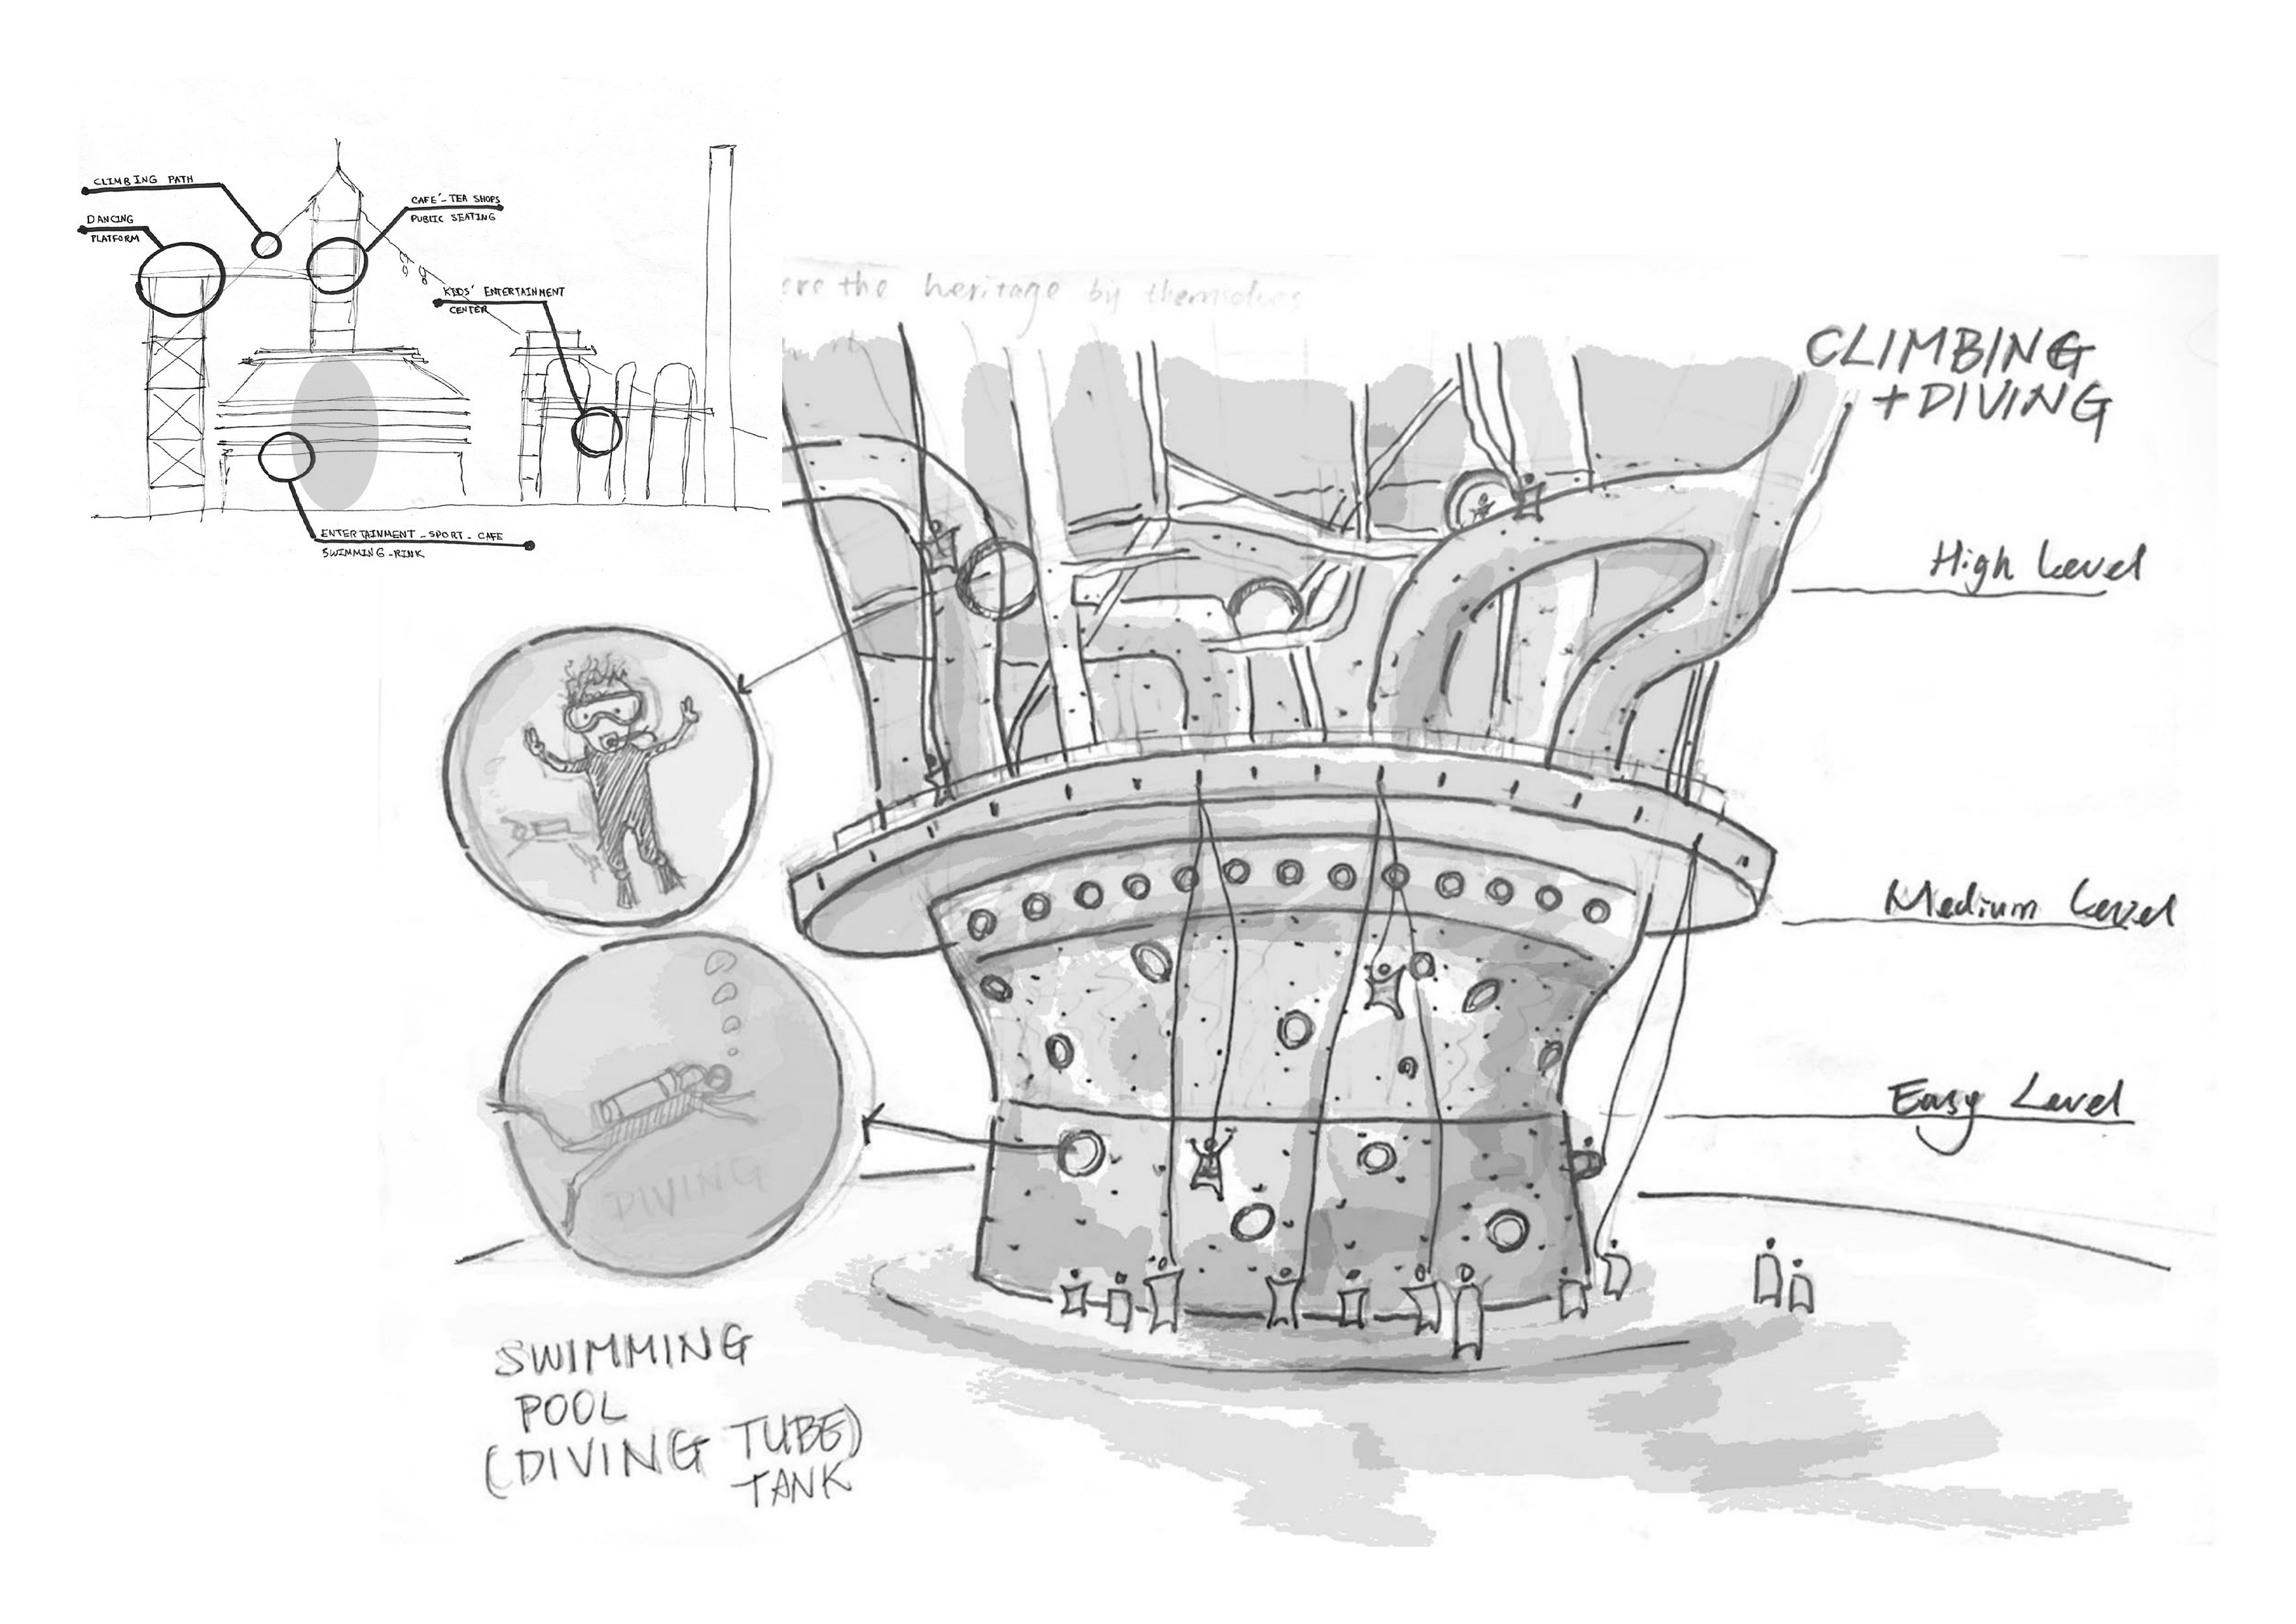 CLIMBING PATH
DANCING
PLATFORM
CAFE'-TEA SHOPS
PUBLIC SEATING
KIDS' ENTERTAINMENT
CENTER
ENTERTAINMENT - SPORT - CAFE
SWIMMING - RINK
the heritage by themselves
CLIMBING
+DIVING
High Level
Medium Level
Easy Level
DIVING
SWIMMING
POOL
(DIVING TUBE)
TANK